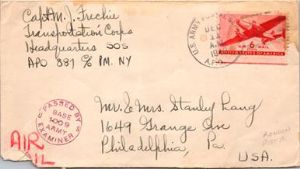 Capt M. J. Frechie
Transportation Corps
Headquarters SOS
APO 887 % P.M. NY
U.S. ARMY
A.P.O.
PASSED BY
BASE
1009
ARMY
EXAMINER
AIR
Mr & Mrs Stanley Lang
1649 Grange Ave
Philadelphia, Pa
U.S.A.